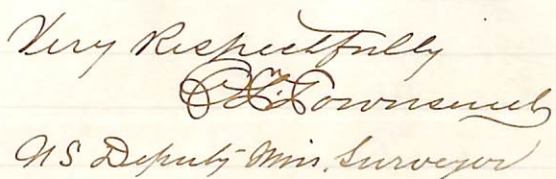 Very Respectfully
Townsend
US Deputy Min. Surveyor